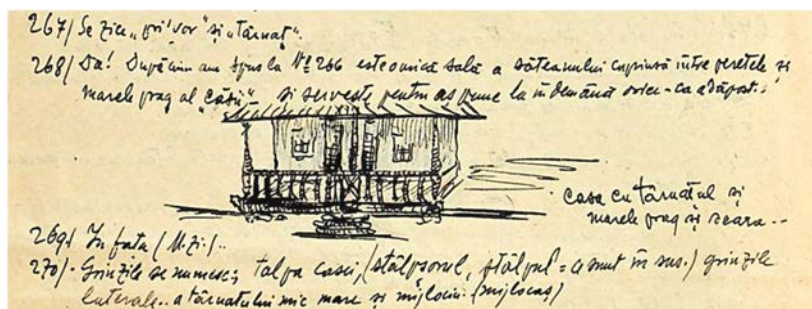 267/ Se zice „pri'vor" și „târnaț".
268/ Da! După cum am spus la № 266 este o mică sală a săteanului cuprinsă între peretele și
marele prag al „căsii" și servește pentru a-și pune la îndemână orice - ca adăpost..
casa cu târnațul și
marele prag și scara...
269/ În fața (M.zi.)..
270/. Grinzile se numesc; talpa casei, (stâlpsorul, stâlpul = ce sunt în sus.) grinzile
laterale.. a târnatului mic mare și mijlociu (mijlocaș)